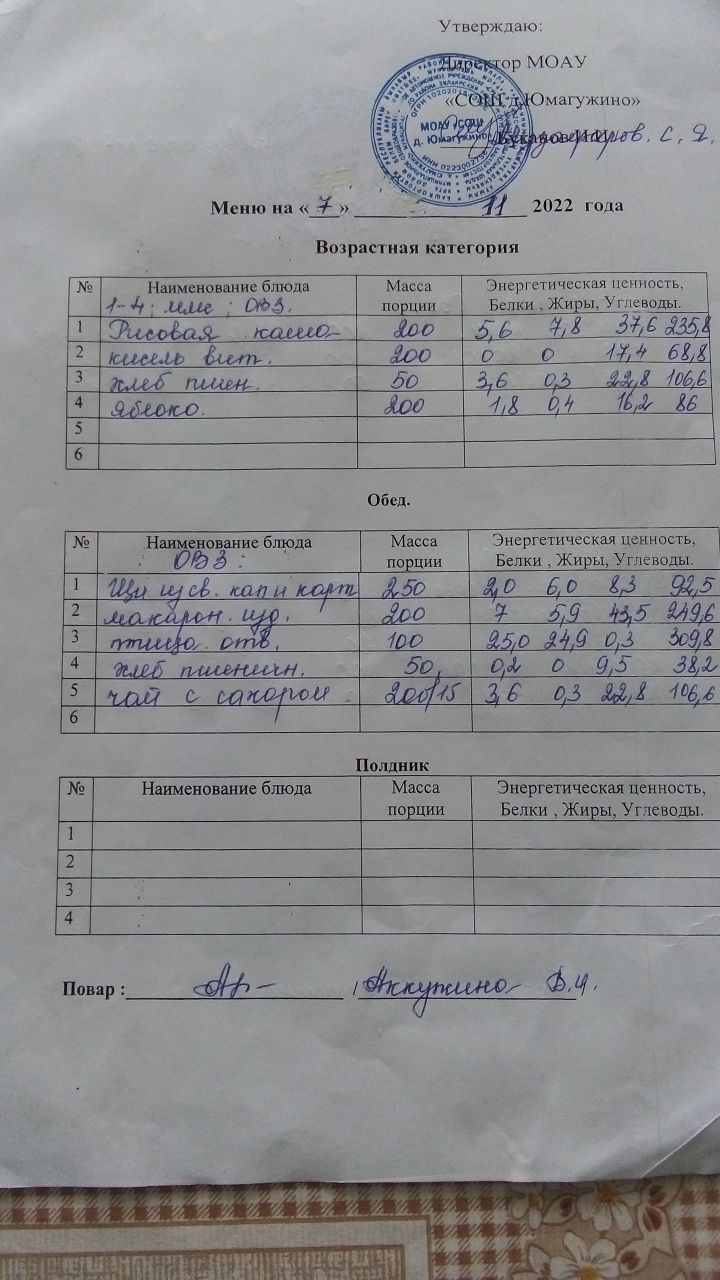 Утверждаю:
Директор МОАУ
«СОШ д.Юмагужино»
С. Я.
МОАУ «СОШ
д. Юмагужино»
Меню на « 7 » 11 2022 года
Возрастная категория
№ Наименование блюда Масса порции Энергетическая ценность, Белки , Жиры, Углеводы.
1-4; ммс; ОВЗ.
1 Рисовая каша 200 5,6 7,8 37,6 235,8
2 кисель вит. 200 0 0 17,4 68,8
3 хлеб пшен. 50 3,6 0,3 22,8 106,6
4 Яблоко. 200 1,8 0,4 16,2 86
5
6
Обед.
№ Наименование блюда Масса порции Энергетическая ценность, Белки , Жиры, Углеводы.
ОВЗ:
1 Щи из св. кап и карт 250 2,0 6,0 8,3 92,5
2 макарон. изд. 200 7 5,9 43,5 249,6
3 птица отв. 100 25,0 24,9 0,3 309,8
4 хлеб пшеничн. 50 0,2 0 9,5 38,2
5 чай с сахаром 200/15 3,6 0,3 22,8 106,6
6
Полдник
№ Наименование блюда Масса порции Энергетическая ценность, Белки , Жиры, Углеводы.
1
2
3
4
Повар : / Аккужина